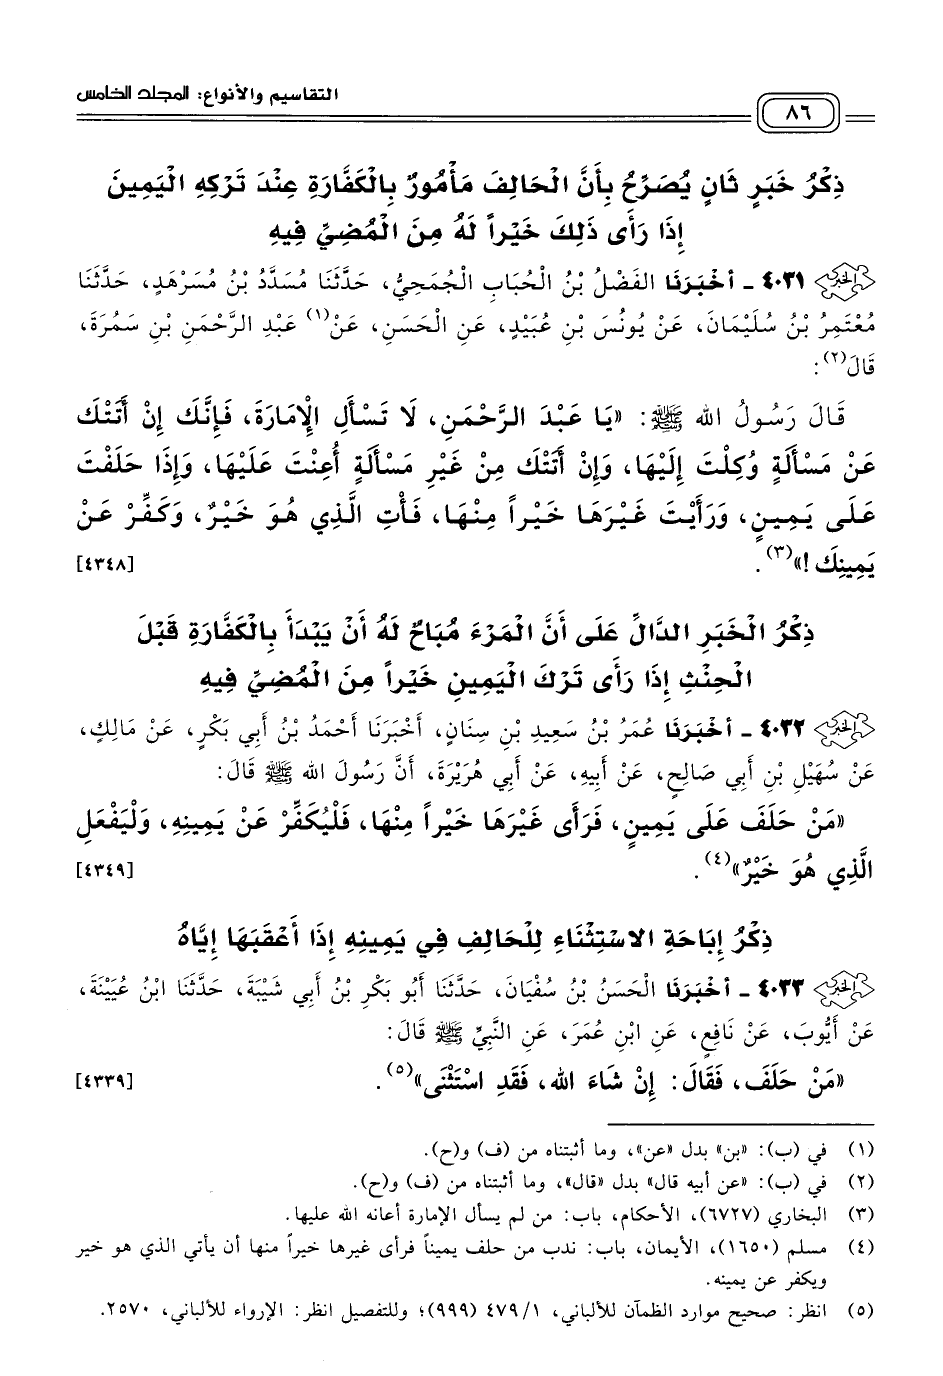 التقاسيم والأنواع: المجلد الخامس
٨٦
ذِكْرُ خَبَرٍ ثَانٍ يُصَرِّحُ بِأَنَّ الْحَالِفَ مَأْمُورٌ بِالْكَفَّارَةِ عِنْدَ تَرْكِهِ الْيَمِينَ
إِذَا رَأَى ذَلِكَ خَيْراً لَهُ مِنَ الْمُضِيِّ فِيهِ
الخبر ٤٠٣١ - أَخْبَرَنَا الفَضْلُ بْنُ الْحُبَابِ الْجُمَحِيُّ، حَدَّثَنَا مُسَدَّدُ بْنُ مُسَرْهَدٍ، حَدَّثَنَا
مُعْتَمِرُ بْنُ سُلَيْمَانَ، عَنْ يُونُسَ بْنِ عُبَيْدٍ، عَنِ الْحَسَنِ، عَنْ(١) عَبْدِ الرَّحْمَنِ بْنِ سَمُرَةَ،
قَالَ(٢):
قَالَ رَسُولُ الله ﷺ: «يَا عَبْدَ الرَّحْمَنِ، لَا تَسْأَلِ الْإِمَارَةَ، فَإِنَّكَ إِنْ أَتَتْكَ
عَنْ مَسْأَلَةٍ وُكِلْتَ إِلَيْهَا، وَإِنْ أَتَتْكَ مِنْ غَيْرِ مَسْأَلَةٍ أُعِنْتَ عَلَيْهَا، وَإِذَا حَلَفْتَ
عَلَى يَمِينٍ، وَرَأَيْتَ غَيْرَهَا خَيْراً مِنْهَا، فَأْتِ الَّذِي هُوَ خَيْرٌ، وَكَفِّرْ عَنْ
يَمِينِكَ!»(٣). [٤٣٤٨]
ذِكْرُ الْخَبَرِ الدَّالِّ عَلَى أَنَّ الْمَرْءَ مُبَاحٌ لَهُ أَنْ يَبْدَأَ بِالْكَفَّارَةِ قَبْلَ
الْحِنْثِ إِذَا رَأَى تَرْكَ الْيَمِينِ خَيْراً مِنَ الْمُضِيِّ فِيهِ
الخبر ٤٠٣٢ - أَخْبَرَنَا عُمَرُ بْنُ سَعِيدِ بْنِ سِنَانٍ، أَخْبَرَنَا أَحْمَدُ بْنُ أَبِي بَكْرٍ، عَنْ مَالِكٍ،
عَنْ سُهَيْلِ بْنِ أَبِي صَالِحٍ، عَنْ أَبِيهِ، عَنْ أَبِي هُرَيْرَةَ، أَنَّ رَسُولَ الله ﷺ قَالَ:
«مَنْ حَلَفَ عَلَى يَمِينٍ، فَرَأَى غَيْرَهَا خَيْراً مِنْهَا، فَلْيُكَفِّرْ عَنْ يَمِينِهِ، وَلْيَفْعَلِ
الَّذِي هُوَ خَيْرٌ»(٤). [٤٣٤٩]
ذِكْرُ إِبَاحَةِ الاسْتِثْنَاءِ لِلْحَالِفِ فِي يَمِينِهِ إِذَا أَعْقَبَهَا إِيَّاهُ
الخبر ٤٠٣٣ - أَخْبَرَنَا الْحَسَنُ بْنُ سُفْيَانَ، حَدَّثَنَا أَبُو بَكْرِ بْنُ أَبِي شَيْبَةَ، حَدَّثَنَا ابْنُ عُيَيْنَةَ،
عَنْ أَيُّوبَ، عَنْ نَافِعٍ، عَنِ ابْنِ عُمَرَ، عَنِ النَّبِيِّ ﷺ قَالَ:
«مَنْ حَلَفَ، فَقَالَ: إِنْ شَاءَ الله، فَقَدِ اسْتَثْنَى»(٥). [٤٣٣٩]
(١) في (ب): «بن» بدل «عن»، وما أثبتناه من (ف) و(ح).
(٢) في (ب): «عن أبيه قال» بدل «قال»، وما أثبتناه من (ف) و(ح).
(٣) البخاري (٦٧٢٧)، الأحكام، باب: من لم يسأل الإمارة أعانه الله عليها.
(٤) مسلم (١٦٥٠)، الأيمان، باب: ندب من حلف يميناً فرأى غيرها خيراً منها أن يأتي الذي هو خير
ويكفر عن يمينه.
(٥) انظر: صحيح موارد الظمآن للألباني، ٤٧٩/١ (٩٩٩)؛ وللتفصيل انظر: الإرواء للألباني، ٢٥٧٠.